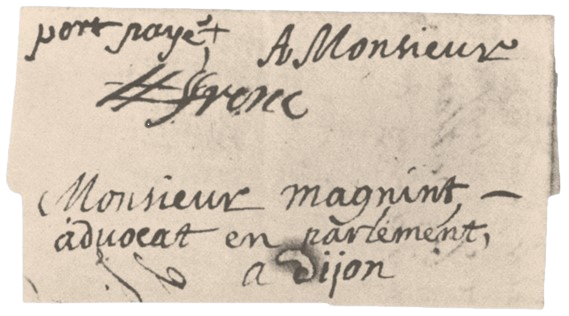 port payé A Monsieur
franc
Monsieur magnint, —
advocat en parlement,
a Dijon